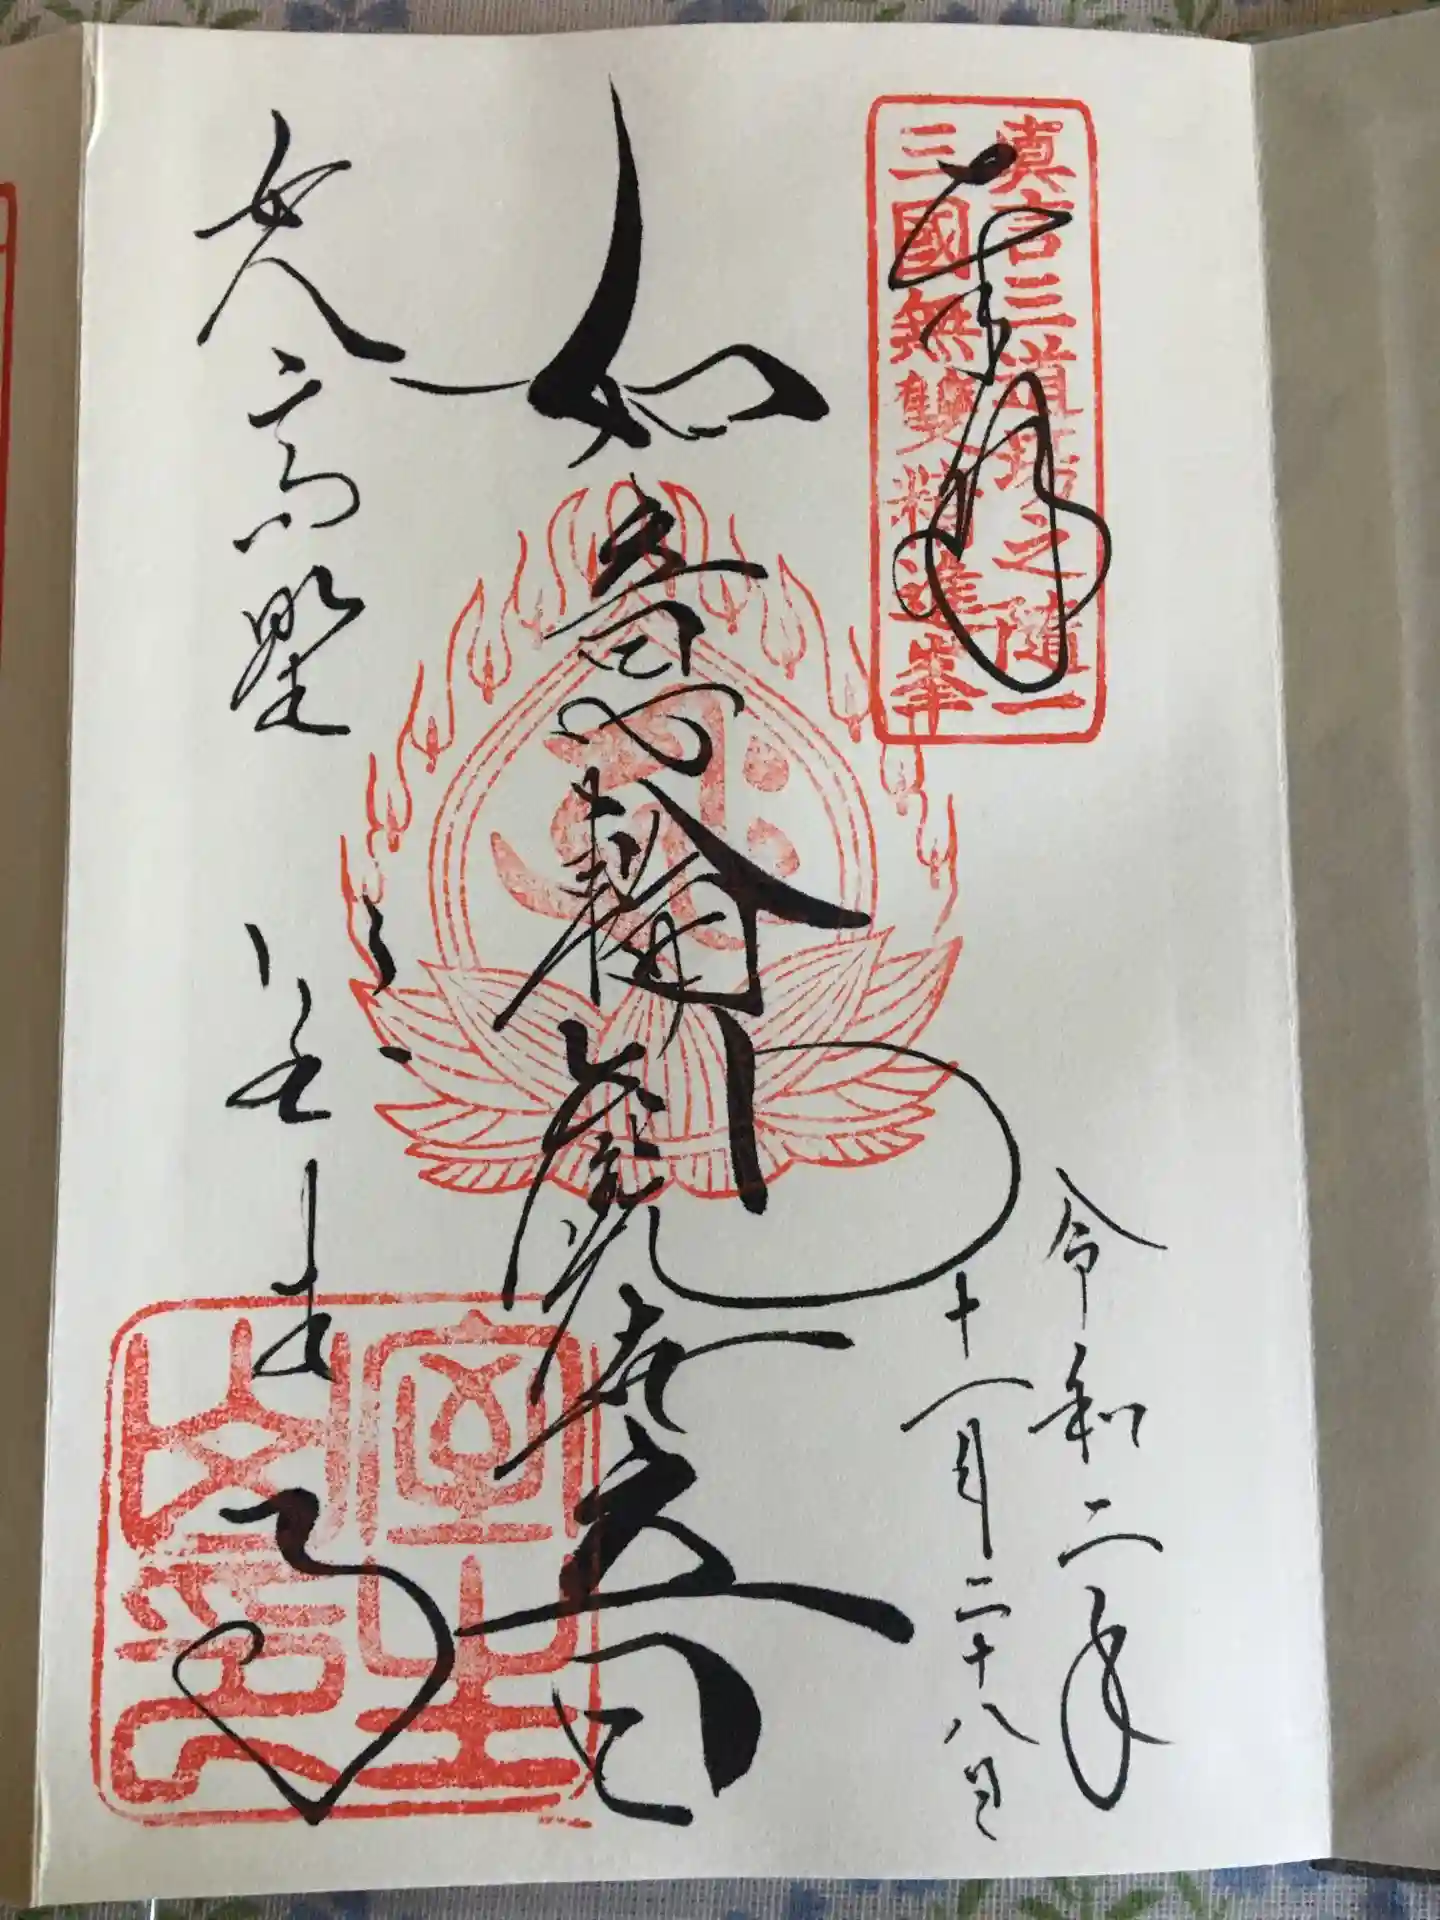 真言三道場之隨一
三國無雙精進峯
奉拝
令和二年
十一月二十八日
如意輪観世音
女人高野
室生寺